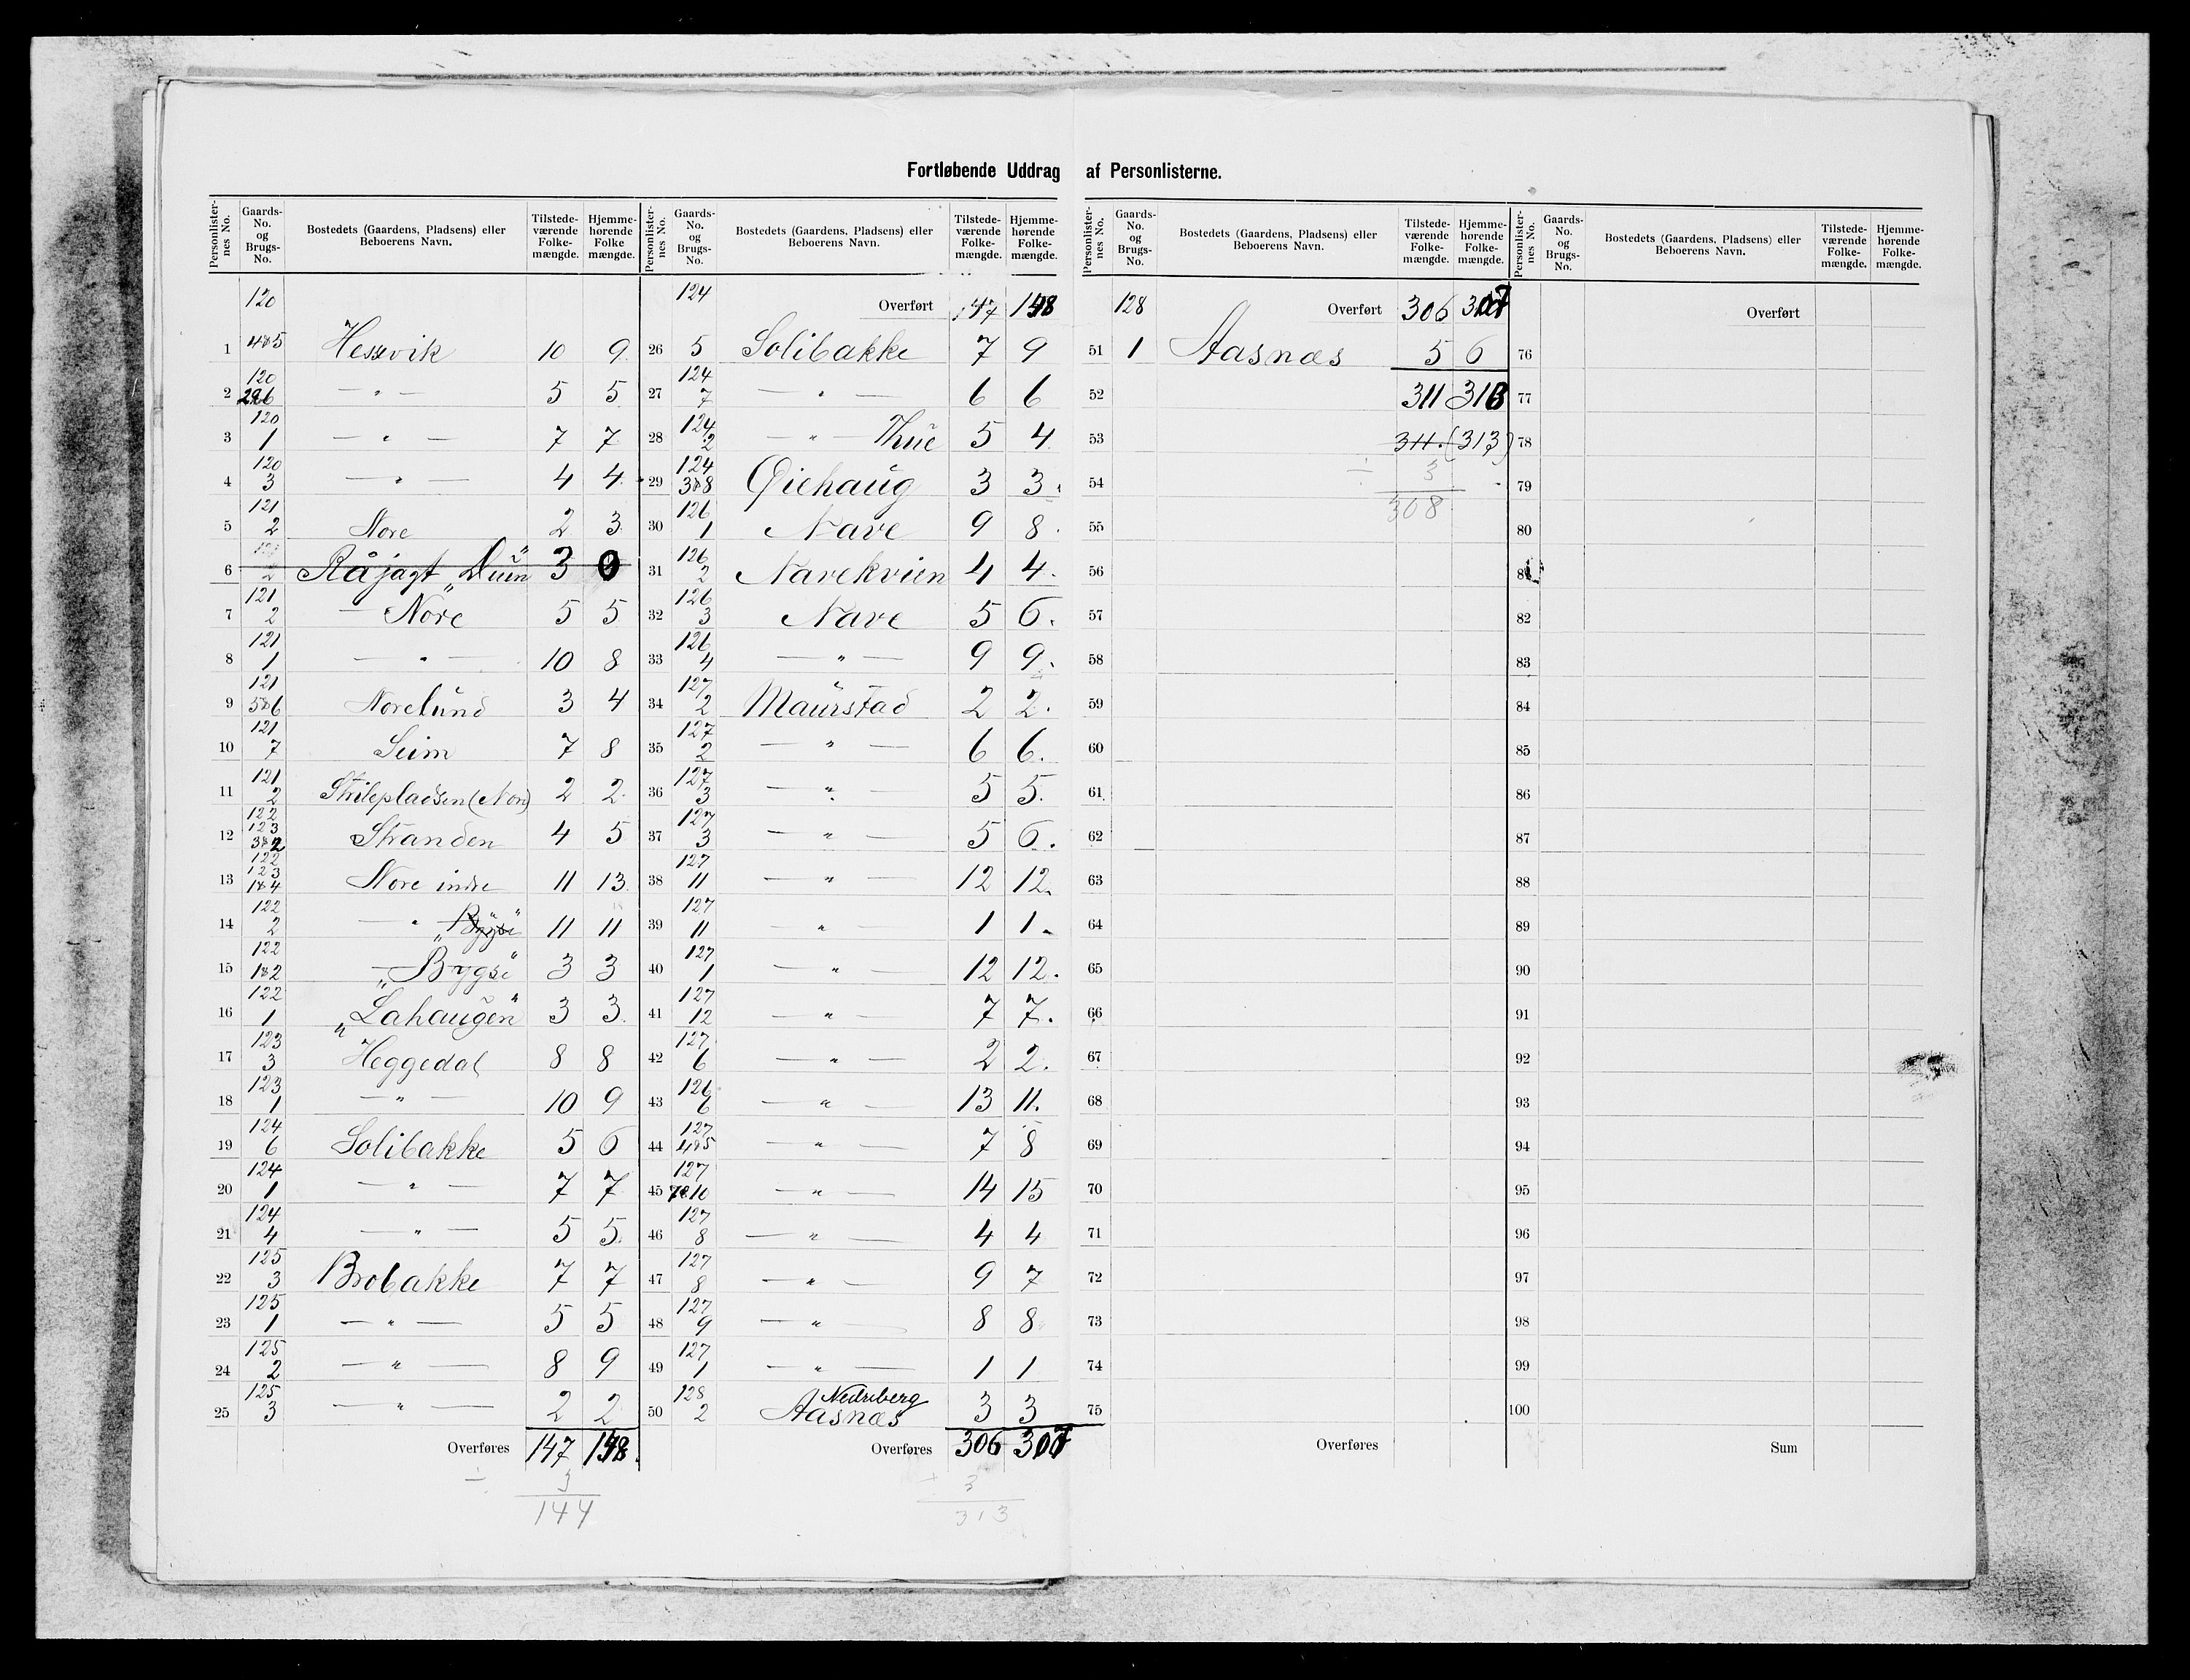 Fortløbende Uddrag af Personlisterne.
Personlister-nes No. | Gaards-No. og Brugs-No. | Bostedets (Gaardens, Pladsens) eller Beboerens Navn. | Tilstede-værende Folke-mængde. | Hjemme-hørende Folke mængde.
120
1 | 4&5 | Hessvik | 10 | 9
2 | 120 2&6 | — " — | 5 | 5
3 | 120 1 | — " — | 7 | 7
4 | 120 3 | — " — | 4 | 4
5 | 121 2 | Nore | 2 | 3
6 | 121 2 | Råjagt „Duen" | 3 | 0
7 | 121 2 | — Nore | 5 | 5
8 | 121 1 | — " — | 10 | 8
9 | 121 5&6 | Norelund | 3 | 4
10 | 121 7 | Seim | 7 | 8
11 | 121 2 | Strilepladsen (Nore) | 2 | 2
12 | 122 123 3&2 | Stranden | 4 | 5
13 | 122 123 1&4 | Nore indre | 11 | 13
14 | 122 2 | — " „Bygse" | 11 | 11
15 | 122 1&2 | — „Bygse" | 3 | 3
16 | 122 1 | „Lahaugen" | 3 | 3
17 | 123 3 | Heggedal | 8 | 8
18 | 123 1 | — " — | 10 | 9
19 | 124 6 | Solibakke | 5 | 6
20 | 124 1 | — " — | 7 | 7
21 | 124 4 | — " — | 5 | 5
22 | 125 3 | Brobakke | 7 | 7
23 | 125 1 | — " — | 5 | 5
24 | 125 2 | — " — | 8 | 9
25 | 125 3 | — " — | 2 | 2
Overføres | 147 | 148
÷ 3
144
Personlister-nes No. | Gaards-No. og Brugs-No. | Bostedets (Gaardens, Pladsens) eller Beboerens Navn. | Tilstede-værende Folke-mængde. | Hjemme-hørende Folke-mængde.
124 | Overført | 147 | 148
26 | 5 | Solibakke | 7 | 9
27 | 124 7 | — " — | 6 | 6
28 | 124 2 | — " — Thue | 5 | 4
29 | 124 3&8 | Øiehaug | 3 | 3
30 | 126 1 | Nave | 9 | 8
31 | 126 2 | Navekvien | 4 | 4
32 | 126 3 | Nave | 5 | 6
33 | 126 4 | — " — | 9 | 9
34 | 127 2 | Maurstad | 2 | 2
35 | 127 2 | — " — | 6 | 6
36 | 127 3 | — " — | 5 | 5
37 | 127 3 | — " — | 5 | 6
38 | 127 11 | — " — | 12 | 12
39 | 127 11 | — " — | 1 | 1
40 | 127 1 | — " — | 12 | 12
41 | 127 12 | — " — | 7 | 7
42 | 127 6 | — " — | 2 | 2
43 | 126 6 | — " — | 13 | 11
44 | 127 4&5 | — " — | 7 | 8
45 | 127 7&10 | — " — | 14 | 15
46 | 127 8 | — " — | 4 | 4
47 | 127 8 | — " — | 9 | 7
48 | 127 9 | — " — | 8 | 8
49 | 127 1 | — " — | 1 | 1
50 | 128 2 | Nedreberg Aasnæs | 3 | 3
Overføres | 306 | 307
÷ 3
313
Personlister-nes No. | Gaards-No. og Brugs-No. | Bostedets (Gaardens, Pladsens) eller Beboerens Navn. | Tilstede-værende Folke-mængde. | Hjemme-hørende Folke-mængde.
128 | Overført | 306 | 307
51 | 1 | Aasnæs | 5 | 6
52 | 311 | 313
53 | 311. | (313)
54 | ÷ 3
55 | 308
56
57
58
59
60
61
62
63
64
65
66
67
68
69
70
71
72
73
74
75
Overføres
Personlister-nes No. | Gaards-No. og Brugs-No. | Bostedets (Gaardens, Pladsens) eller Beboerens Navn. | Tilstede-værende Folke-mængde. | Hjemme-hørende Folke-mængde.
Overført
76
77
78
79
80
81
82
83
84
85
86
87
88
89
90
91
92
93
94
95
96
97
98
99
100
Sum